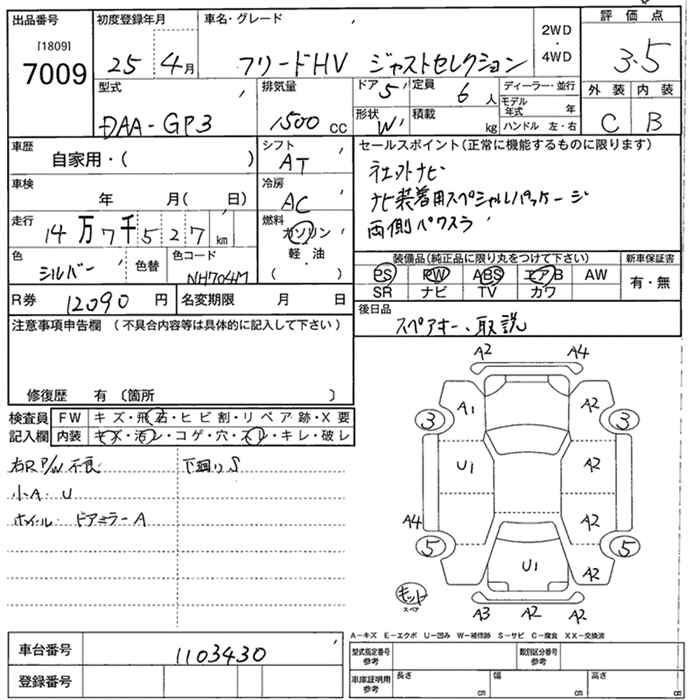 出品番号 初度登録年月 車名・グレード 2WD・4WD 評価点
[1809] 7009 25年 4月 フリードHV ジャストセレクション 3.5
型式 排気量 ドア 5 定員 6人 ディーラー・並行 外装 内装
DAA-GP3 1500cc 形状 W 積載 kg モデル年式 年 ハンドル 左・右 C B
車歴 シフト セールスポイント(正常に機能するものに限ります)
自家用・( ) AT
車検 冷房 ナビ装着用スペシャルパッケージ
年 月( 日) AC 両側パワスラ
走行 燃料
14万7千527km ガソリン
色 色替 色コード 軽・油 装備品(純正品に限り丸をつけて下さい) 新車保証書
シルバー NH704M ( ) PS PW ABS エアB AW 有・無
SR ナビ TV カワ
R券 12090円 名変期限 月 日 後日品
注意事項申告欄 (不具合内容等は具体的に記入して下さい) スペアキー、取説
修復歴 有 〔箇所 〕
検査員 FW キズ・飛石・ヒビ割・リペア跡・X要
記入欄 内装 キズ・汚レ・コゲ・穴・スレ・キレ・破レ
右R P/W 不良 下廻り S
小A.U
ホイール・ドアミラーA
A2 A4
3 A1 A2 3
U1 A2
A4 A2
5 5
U1 A2
キット
スペア
A3 A2 A2
A-キズ E-エクボ U-凹み W-補修跡 S-サビ C-腐食 XX-交換済
車台番号 1103430 型式指定番号 参考 類別区分番号 参考
登録番号 車庫証明用 参考 長さ cm 幅 cm 高さ cm